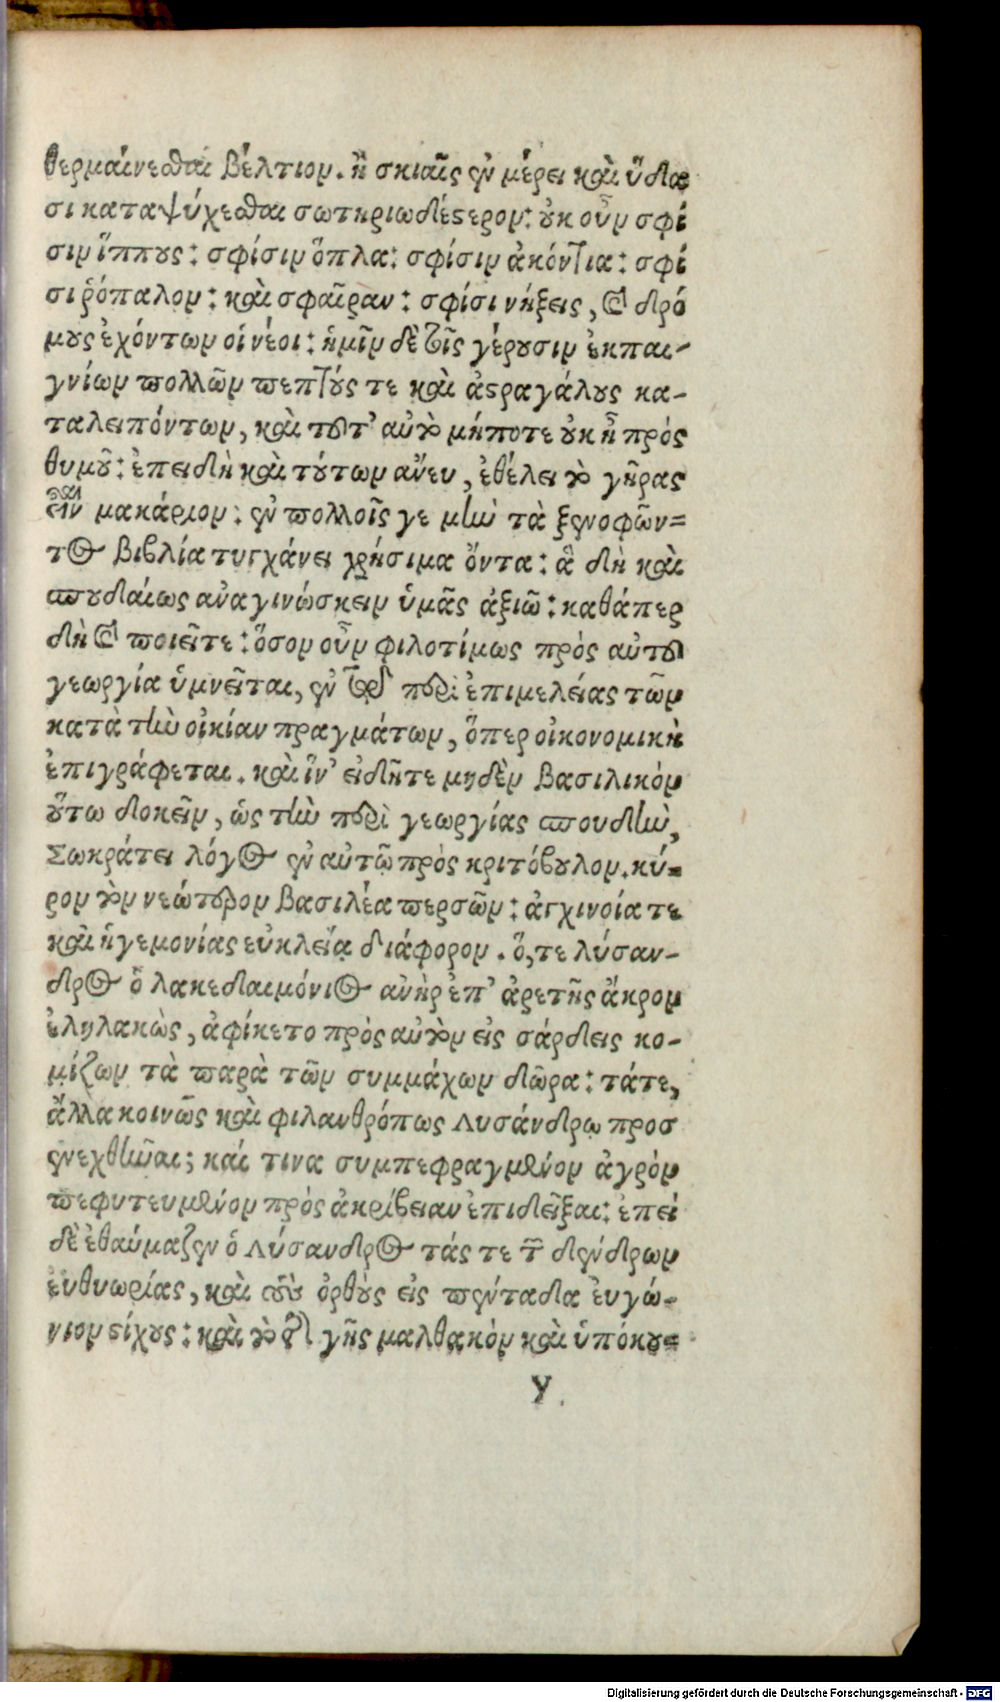 θερμαίνεσθαι βέλτιον. ἢ σκιαῖς ἐν μέρει καὶ ὕδα
σι καταψύχεσθαι σωτηριωδέστερον: οὐκ οὖν σφί
σιν ἵππους: σφίσιν ὅπλα: σφίσιν ἀκόντια: σφί
σι ῥόπαλον: καὶ σφαῖραν: σφίσι νήξεις, καὶ δρό
μους ἐχόντων οἱ νέοι: ἡμῖν δὲ τοῖς γέρουσιν ἐκπαι-
γνίων πολλῶν πεπτούς τε καὶ ἀστραγάλους κα-
ταλειπόντων, καὶ τοῦτ' αὐτὸ μήποτε οὐκ ἦ πρὸς
θυμοῦ: ἐπειδὴ καὶ τούτων ἄνευ, ἐθέλει τὸ γῆρας
εἶναι μακάριον: ἐν πολλοῖς γε μὴν τὰ ξενοφῶν=
τος βιβλία τυγχάνει χρήσιμα ὄντα: ἃ δὴ καὶ
σπουδαίως ἀναγινώσκειν ὑμᾶς ἀξιῶ: καθάπερ
δὴ καὶ ποιεῖτε: ὅσον οὖν φιλοτίμως πρὸς αὐτοῦ
γεωργία ὑμνεῖται, ἐν τῷ περὶ ἐπιμελείας τῶν
κατὰ τὴν οἰκίαν πραγμάτων, ὅπερ οἰκονομικὴ
ἐπιγράφεται. καὶ ἵν' εἰδῆτε μηδὲν βασιλικὸν
οὕτω δοκεῖν, ὡς τὴν περὶ γεωργίας σπουδὴν,
Σωκράτει λόγος ἐν αὐτῷ πρὸς κριτόβουλον. κύ=
ρον τὸν νεώτερον βασιλέα περσῶν: ἀγχινοία τε
καὶ ἡγεμονίας εὐκλείᾳ διάφορον. ὅ,τε λύσαν-
δρος ὁ λακεδαιμόνιος ἀνὴρ ἐπ' ἀρετῆς ἄκρον
ἐληλακὼς, ἀφίκετο πρὸς αὐτὸν εἰς σάρδεις κο-
μίζων τὰ παρὰ τῶν συμμάχων δῶρα: τάτε,
ἄλλα κοινῶς καὶ φιλανθρόπως Λυσάνδρῳ προσ
ενεχθῆναι; καί τινα συμπεφραγμένον ἀγρὸν
πεφυτευμένον πρὸς ἀκρίβειαν ἐπιδεῖξαι: ἐπεί
δὲ ἐθαύμαζεν ὁ Λύσανδρος τάς τε τῶν δένδρων
εὐθυωρίας, καὶ τοὺς ὀρθοὺς εἰς πεντάδια εὐγώ-
νιον στίχους: καὶ τὸ τῆς γῆς μαλθακὸν καὶ ὑπόκου=
Y
Digitalisierung gefördert durch die Deutsche Forschungsgemeinschaft - DFG